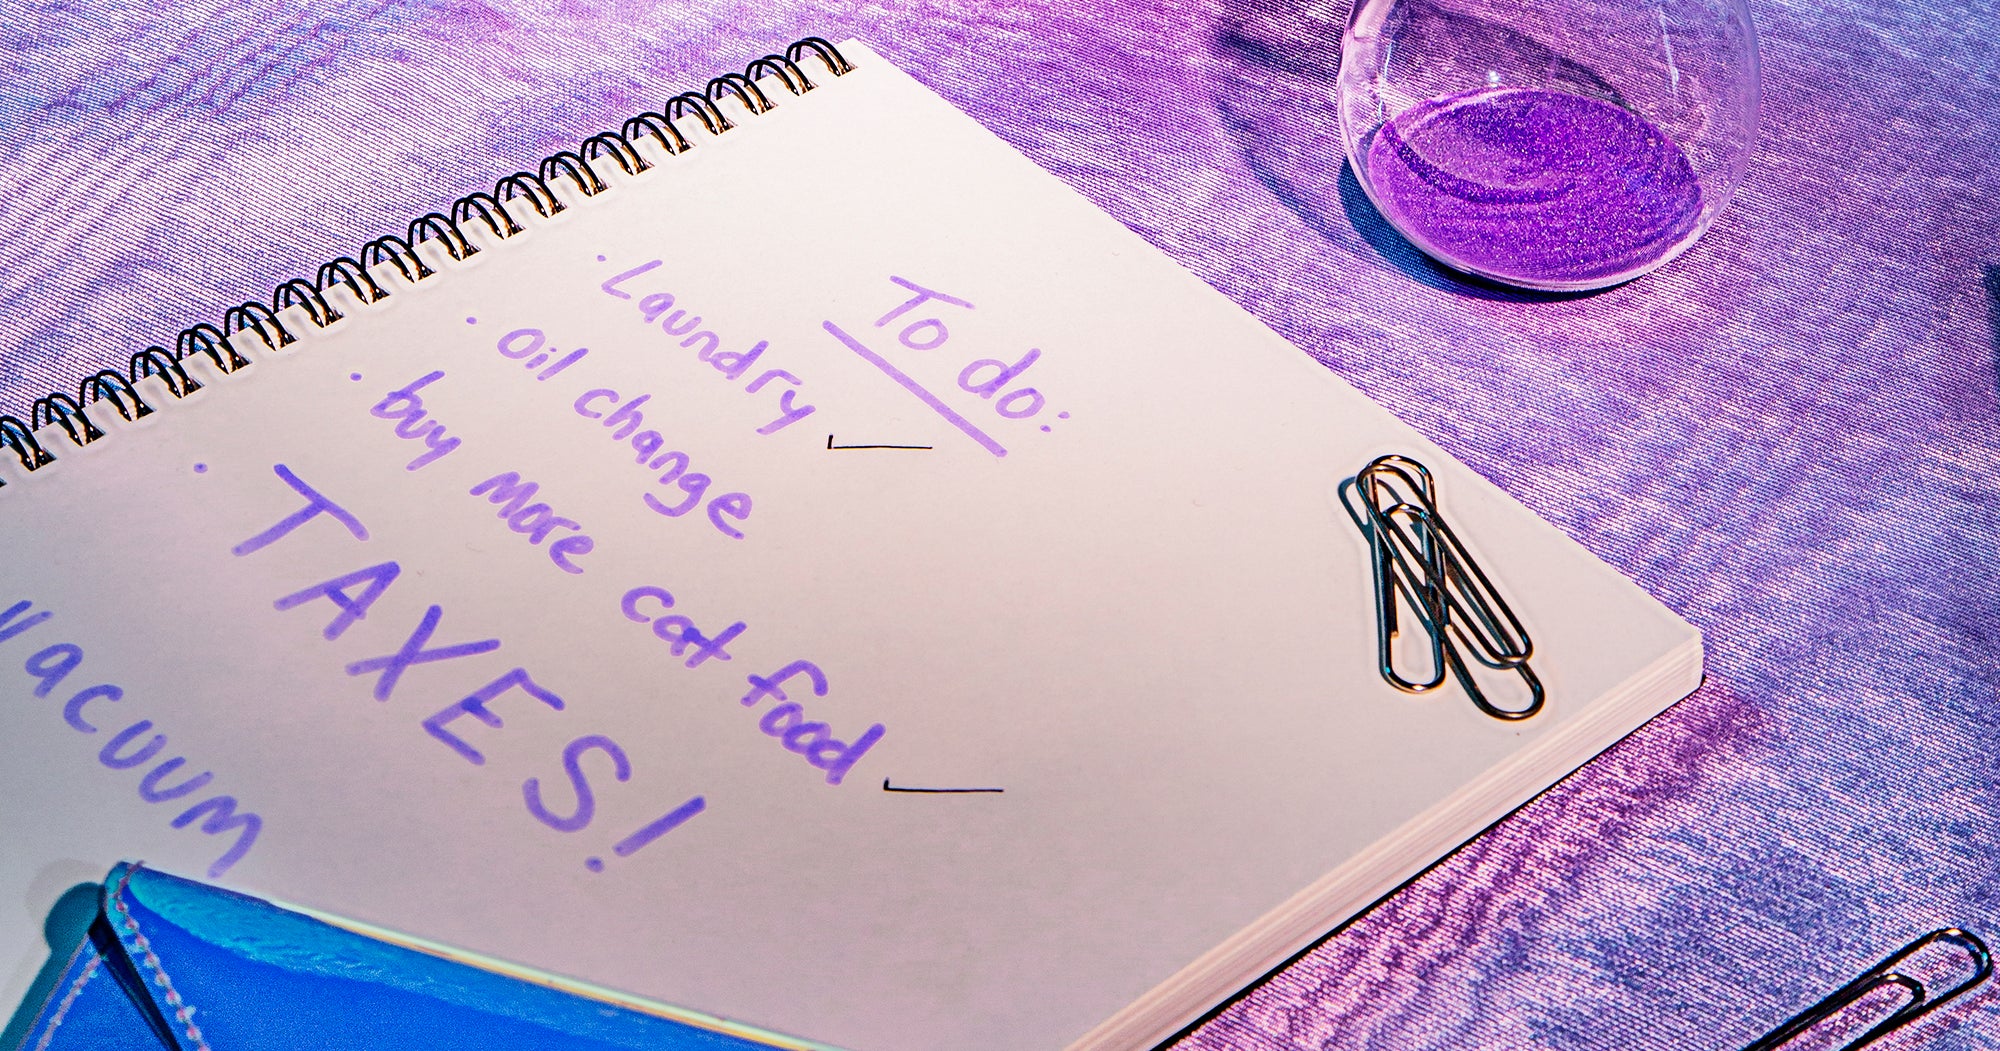 To do:
· Laundry ✓
· Oil change
· buy more cat food ✓
· TAXES!
vacuum